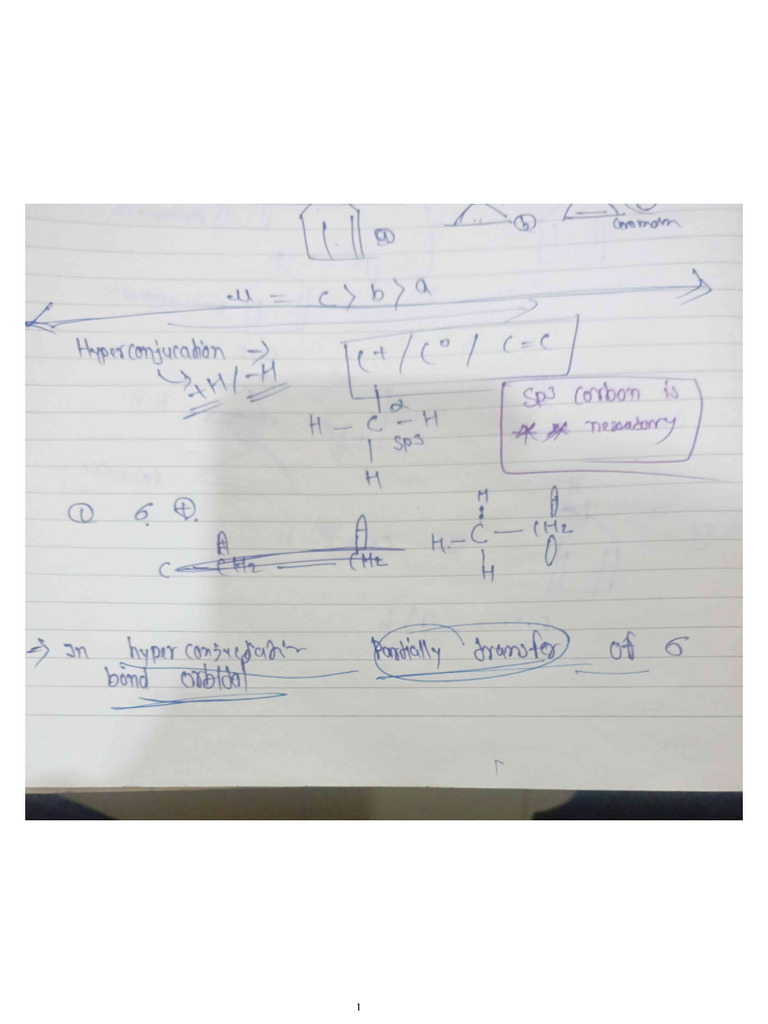 a
b
common
μ = c > b > a
Hyperconjucation →
C+ / C° / C=C
+H / -H
H - C α - H
sp3
H
Sp3 Carbon is
nessatory
① σ ⊕.
C CH2 = CH2
H
H - C - CH2
H
⇒ In hyperconjucation Partially transfer of σ
bond orbital
1